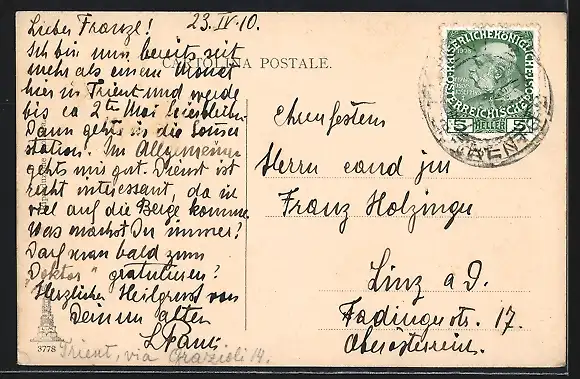 Lieber Franzl! 23.IV.10.
Ich bin nun bereits seit
mehr als einem Monat
hier in Trient und werde
bis ca 2te Mai hierbleiben.
Dann geht's in die Sommer
station. Im Allgemeinen
geht's mir gut. Dienst ist
recht interessant, da ich
viel auf die Berge komme.
Was machst Du immer?
Darf man bald zum
"Doktor" gratulieren?
Herzlichen Heilgruss von
Deinem alten
Trient, via Grazioli 14.
3778
CARTOLINA POSTALE.
KAISERLICHE KÖNIGLICHE
ÖSTERREICHISCHE
5 HELLER 5
TRENTO
Ehrenfesten
Herrn cand jur
Franz Holzinger
Linz a D.
Fadingerstr. 17.
Oberösterreich.